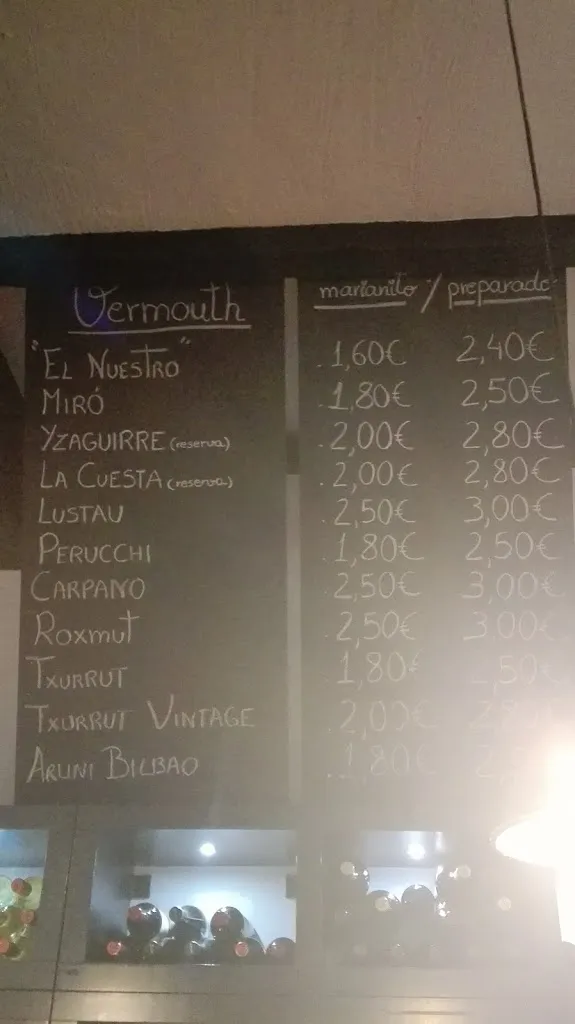 Vermouth marianito / preparado
"EL NUESTRO" 1,60€ 2,40€
MIRÓ 1,80€ 2,50€
YZAGUIRRE (reserva) 2,00€ 2,80€
LA CUESTA (reserva) 2,00€ 2,80€
LUSTAU 2,50€ 3,00€
PERUCCHI 1,80€ 2,50€
CARPANO 2,50€ 3,00€
ROXMUT 2,50€ 3,00€
TXURRUT 1,80€ ,50€
TXURRUT VINTAGE 2,00€
ARUNI BILBAO 1,80€